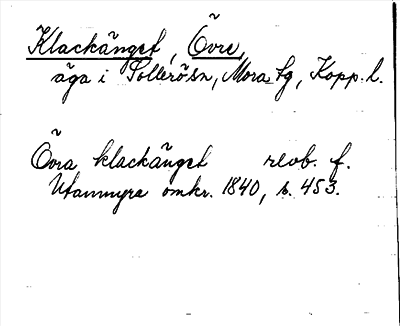 Klackänget, Övre,
äga i Sollerösn, Mora tg, Kopp. l.
Övra klackänget revb. f.
Utanmyra omkr. 1840, s. 453.